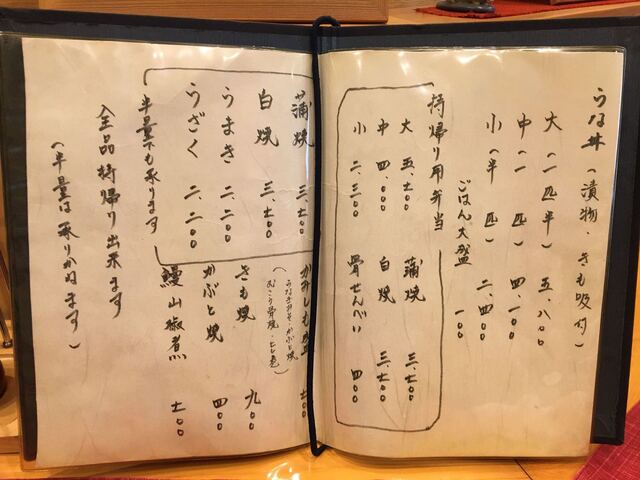 うな丼（漬物・きも吸付）
大（一匹半）五、八〇〇
中（一匹）四、一〇〇
小（半匹）二、四〇〇
ごはん大盛 一〇〇
持帰り用弁当
大 五、七〇〇
中 四、〇〇〇
小 二、三〇〇
蒲焼 三、七〇〇
白焼 三、七〇〇
骨せんべい 四〇〇
蒲焼 三、七〇〇
白焼 三、七〇〇
うまき 二、二〇〇
うざく 二、二〇〇
半量でも承ります
七〇〇
きも焼 九〇〇
かぶと焼 四〇〇
鰻山椒煮 七〇〇
全品持帰り出来ます
（半量は承りかねます）